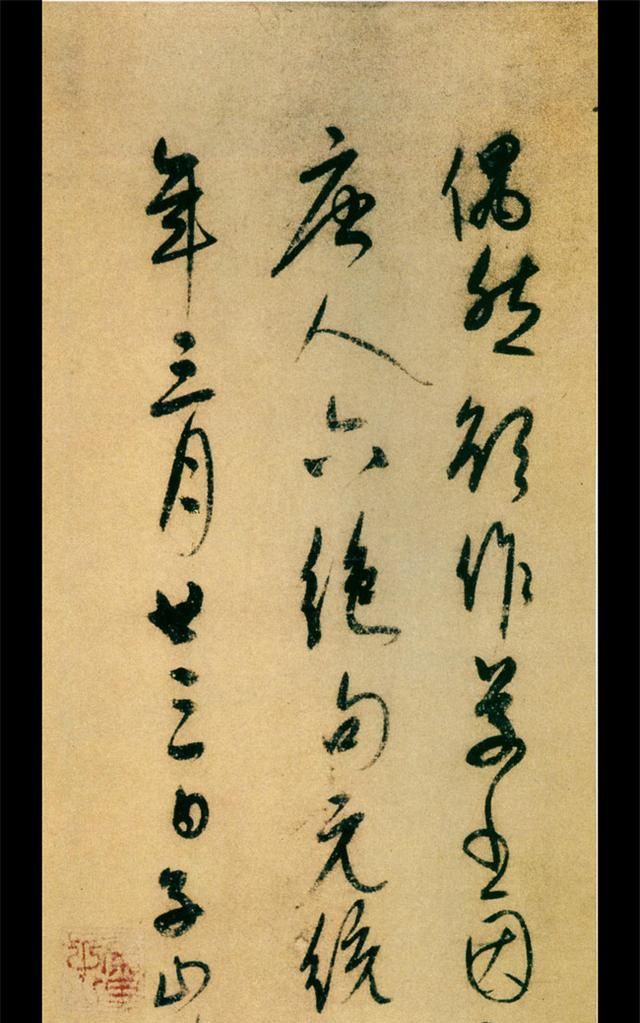 偶然欲作草書因
唐人六絕句元統
年三月廿三日子山